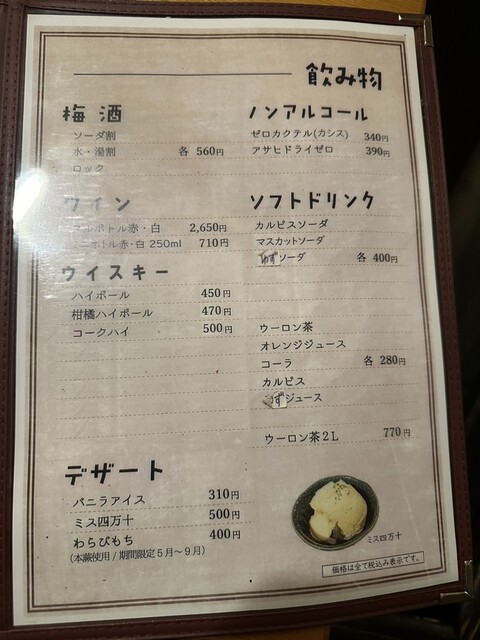 飲み物
梅酒
ソーダ割
水・湯割 各 560円
ロック
ワイン
ボトル赤・白 2,650円
ボトル赤・白 250ml 710円
ウイスキー
ハイボール 450円
柑橘ハイボール 470円
コークハイ 500円
デザート
バニラアイス 310円
ミス四万十 500円
わらびもち 400円
(本蕨使用 / 期間限定5月～9月)
ノンアルコール
ゼロカクテル(カシス) 340円
アサヒドライゼロ 390円
ソフトドリンク
カルピスソーダ
マスカットソーダ
ゆずソーダ 各 400円
ウーロン茶
オレンジジュース
コーラ 各 280円
カルピス
ゆずジュース
ウーロン茶2L 770円
ミス四万十
価格は全て税込み表示です。